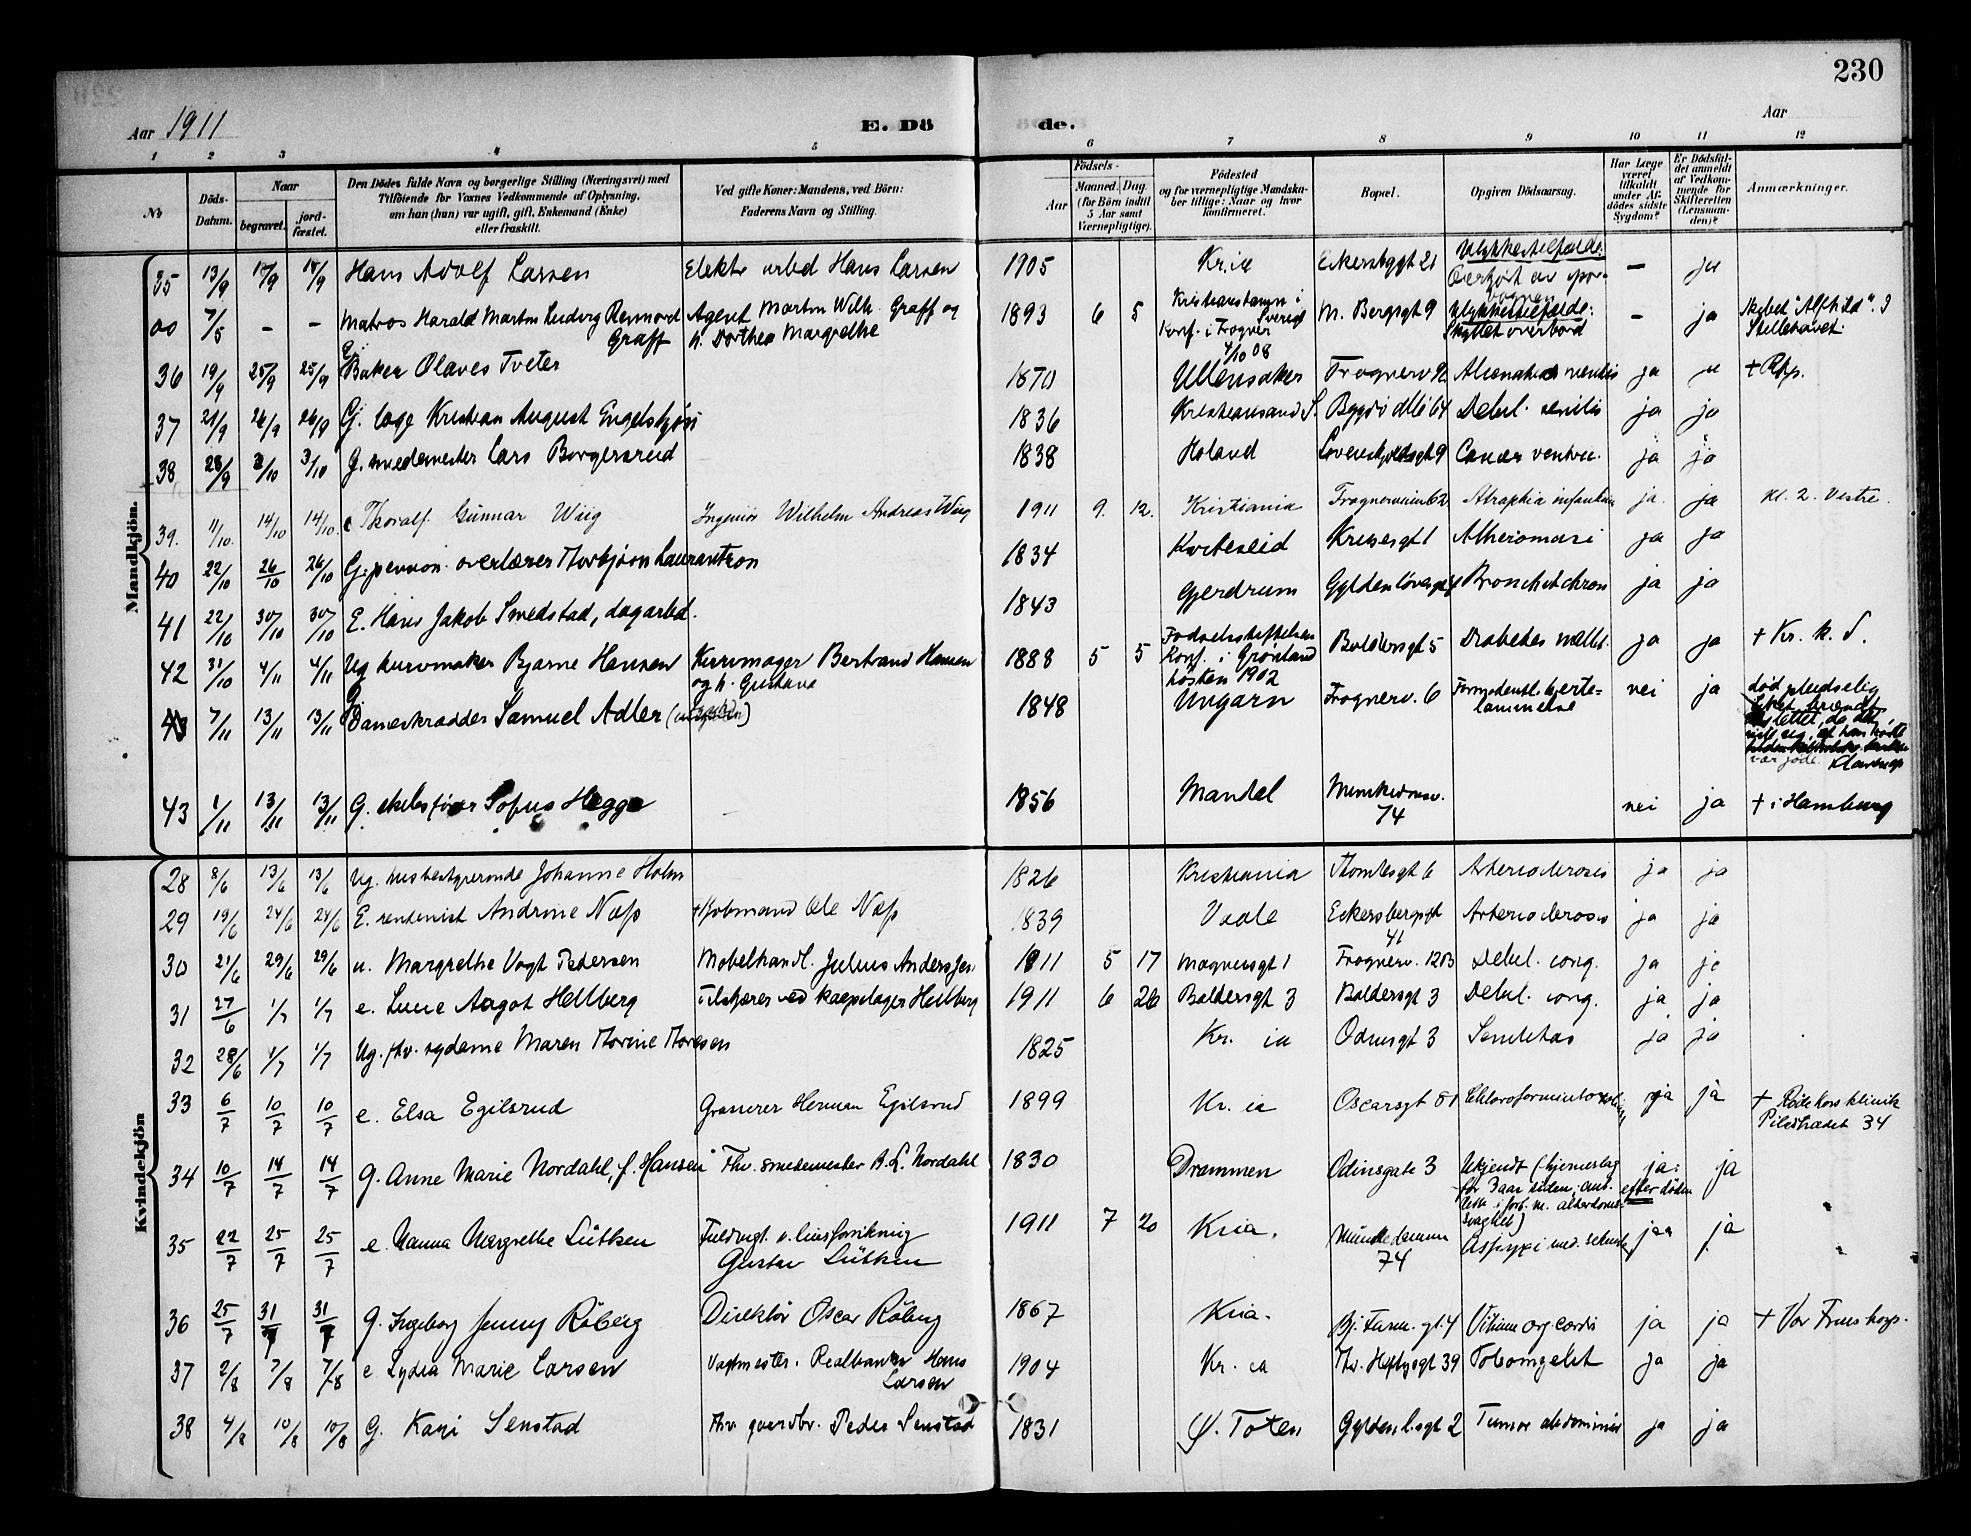 230
Aar 1911
E. Dö de.
Aar
1 2 3 4 5 6 7 8 9 10 11 12
No
Döds-Datum.
Naar
begravet.
jord-fæstet.
Den Dödes fulde Navn og borgerlige Stilling (Næringsvei) med
Tilföiende for Voxnes Vedkommende af Oplysning,
om han (hun) var ugift, gift, Enkemand (Enke)
eller fraskilt.
Ved gifte Koner: Mandens, ved Börn:
Faderens Navn og Stilling.
Födsels-
Aar
Maaned. Dag.
(for Börn indtil
5 Aar samt
Værnepligtige).
Födested
og for værnepligtige Mandska-
ber tillige: Naar og hvor
konfirmeret.
Bopæl.
Opgiven Dödsaarsag.
Har Læge
været
tilkaldt
under Af-
dödes sidste
Sygdom?
Er Dödsfal-
det anmeldt
af Vedkom-
mende for
Skifteretten
(Lensman-
den)?
Anmærkninger.
Mandkjön.
35 13/9 14/9 Hans Adolf Larsen Elektr arbd Hans Larsen 1905 Kr.ia Eckersbggt 21 Ulykkestilfælde: Overkjørt av spor- — ja
00 7/5 – – Matros Harald Martin Ludvig Graff Agent Martin Wilh. Graff og h. Dorthea Margrethe 1893 6 5 Kristianstavn i Sverige Konf. i Frogner 4/10 08 M. Bergsgt 9 Ulykkestilfælde: Skyllet overbord — ja Skibet "Alfhild". I Stillehavet.
36 19/9 25/9 25/9 G Baker Olaves Tveter 1870 Ullensaker Frognerv 92 Alienatio mentis ja ja
37 21/9 26/9 26/9 G. Kristian August 1836 Kristiansand S. Bygdø Allé 64 Debil. senilis ja ja
38 28/9 3/10 3/10 G. smedemester Lars Borgersrud 1838 Høland Løvenskjoldsgt 9 Cancer ventric. ja ja
39. 11/10. 14/10 14/10. e Thoralf Gunnar Wiig Ingeniør Wilhelm Andreas Wiig 1911 9. 12. Kristiania Frognerveien 62 Atrophia infantum ja. ja Kl. 2. Vestre.
40 22/10 26/10 26/10 G. pension. overlærer Thorbjørn Laurantzon 1834 Kviteseid 1 Atheromasi ja ja
41 22/10 30/10 30/10 E. Hans Jakob Smedstad, dagarbd. 1843 Gjerdrum Gyldenløvesgt Bronchit chron ja ja
42 31/10 4/11 4/11 Ug kurvmaker Bjarne Hansen Kurvmager Bertrand Hansen og h. Gustava 1888 5 5 Fødselsstiftelsen Konf. i Grønland høsten 1902 Baldersgt 5 Diabetes mellit. ja ja + Kr. k. S.
43 7/11 13/11 13/11 G Dameskrædder Samuel Adler 1848 Ungarn Frognerv. 6 Formodentl. hjerte-lammelse nei ja død pludselig
43 1/11 13/11 13/11 G. skibsfører Sofus Hegge 1856 Mandal Munkedamsv. 74 nei ja + i Hamburg
Kvindekjön
28 8/6 13/6 13/6 Ug. husbestyrerinde Johanne Holm 1826 Kristiania Thomlesgt 6 Arteriosclerosis ja ja
29 19/6 24/6 24/6 E. rentenist Andrine Næss Ole Næss 1839 Vaale Eckersbergsgt 41 Arteriosclerosis ja ja
30 21/6 29/6 29/6 u. Margrethe Vogt Pedersen Møbelhandl. Julius Anders 1911 5 17 Magnusgt 1 Frognerv. Debil. cong. ja ja
31 27/6 1/7 1/7 e. Aagot Hellberg Hellberg 1911 6 26 Baldersgt 3 Baldersgt 3 Debil. cong. ja ja
32 28/6 1/7 1/7 Ug. fhv. sydame Maren Thorine Thoresen 1825 Kr. ia Odinsgt 3 Senilitas ja ja
33 6/7 10/7 10/7 e. Elsa Egilsrud Grosserer Herman Egilsrud 1899 Kr. ia Oscarsgt ja ja + Røde Kors klinik Pilestrædet 34
34 10/7 14/7 14/7 G. Anne Marie Nordahl, f. Hansen Fhv. smedemester A. L. Nordahl 1830 Drammen Odinsgate 3 Ukjendt (hjerneslag for 3 aar siden, i forb. m. alderdoms-svaghet) ja: efter døden ja
35 22/7 25/7 25/7 e. Nanna Margrethe Lütken Fuldmgt. v. Gustav Lütken 1911 7 20 Kria. 74 ja ja
36 25/7 31/7 31/7 G. Ingeborg Jenny Røberg Direktør Oscar Røberg 1867 Kria. Bj. Farm. gt. 4 Vitium org. cordis ja ja + Vor Frues hosp.
37 2/8 7/8 7/8 e Lydia Marie Larsen Vagtmester. Realbanken Hans Larsen 1904 Kr. ia Th. Heftyesgt 39 ja ja
38 4/8 10/8 10/8 G. Kari Senstad Fhv. gaardbr. Peder Senstad 1831 Ø. Toten Gyldenl.sgt 2 Tumor abdominis ja ja